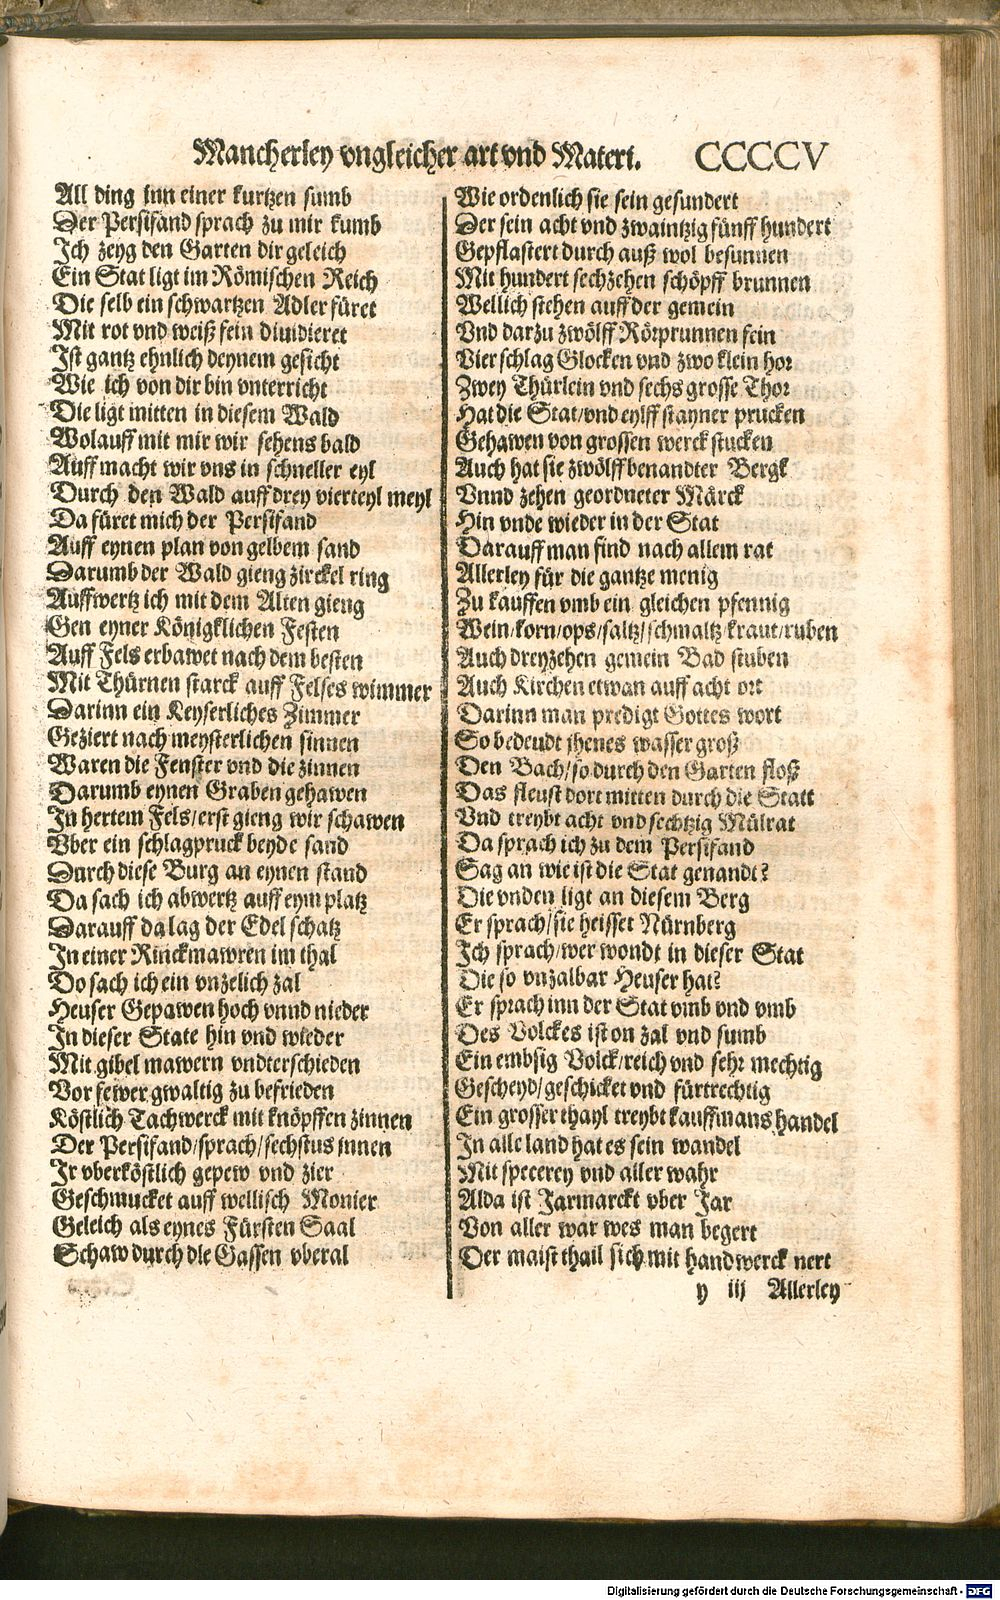 Mancherley vngleicher art vnd Materi. CCCCV
All ding inn einer kurtzen sumb
Der Persifand sprach zu mir kumb
Ich zeyg den Garten dir geleich
Ein Stat ligt im Römischen Reich
Die selb ein schwartzen Adler füret
Mit rot vnd weiß fein diuidieret
Ist gantz ehnlich deynem gesicht
Wie ich von dir bin vnterricht
Die ligt mitten in diesem Wald
Wolauff mit mir wir sehens bald
Auff macht wir vns in schneller eyl
Durch den Wald auff drey vierteyl meyl
Da füret mich der Persifand
Auff eynen plan von gelbem sand
Darumb der Wald gieng zirckel ring
Auffwertz ich mit dem Alten gieng
Gen eyner Königklichen Festen
Auff Fels erbawet nach dem besten
Mit Thürnen starck auff Felses wimmer
Darinn ein Keyserliches Zimmer
Geziert nach meysterlichen sinnen
Waren die Fenster vnd die zinnen
Darumb eynen Graben gehawen
In hertem Fels/erst gieng wir schawen
Vber ein schlagpruck beyde sand
Durch diese Burg an eynen stand
Da sach ich abwertz auff eym platz
Darauff da lag der Edel schatz
In einer Rinckmawren im thal
Do sach ich ein vnzelich zal
Heuser Gepawen hoch vnnd nieder
In dieser State hin vnd wieder
Mit gibel mawern vndterschieden
Vor fewer gwaltig zu befrieden
Köstlich Tachwerck mit knöpffen zinnen
Der Persifand/sprach/sechstus innen
Ir vberköstlich gepew vnd zier
Geschmucket auff wellisch Monier
Geleich als eynes Fürsten Saal
Schaw durch die Gassen vberal
Wie ordenlich sie sein gesundert
Der sein acht vnd zwaintzig fünff hundert
Gepflastert durch auß wol besunnen
Mit hundert sechzehen schöpff brunnen
Wellich stehen auff der gemein
Vnd darzu zwölff Rörprunnen fein
Vier schlag Glocken vnd zwo klein hor
Zwey Thürlein vnd sechs grosse Thor
Hat die Stat/vnd eylff stayner prucken
Gehawen von grossen werck stucken
Auch hat sie zwölff benandter Bergk
Vnnd zehen geordneter Märck
Hin vnde wieder in der Stat
Darauff man find nach allem rat
Allerley für die gantze menig
Zu kauffen vmb ein gleichen pfennig
Wein/korn/ops/saltz/schmaltz/kraut/ruben
Auch dreyzehen gemein Bad stuben
Auch Kirchen etwan auff acht ort
Darinn man predigt Gottes wort
So bedeudt jhenes wasser groß
Den Bach/so durch den Garten floß
Das fleust dort mitten durch die Statt
Vnd treybt acht vnd sechtzig Mülrat
Da sprach ich zu dem Persifand
Sag an wie ist die Stat genandt?
Die vnden ligt an diesem Berg
Er sprach/sie heisset Nürnberg
Ich sprach/wer wondt in dieser Stat
Die so vnzalbar Heuser hat?
Er sprach inn der Stat vmb vnd vmb
Des Volckes ist on zal vnd sumb
Ein embsig Volck/reich vnd sehr mechtig
Gescheyd/geschicket vnd fürtrechtig
Ein grosser thayl treybt kauffmans handel
In alle land hat es sein wandel
Mit specerey vnd aller wahr
Alda ist Jarmarckt vber Jar
Von aller war wes man begert
Der maist thail sich mit handwerck nert
y iij Allerley
Digitalisierung gefördert durch die Deutsche Forschungsgemeinschaft - DFG